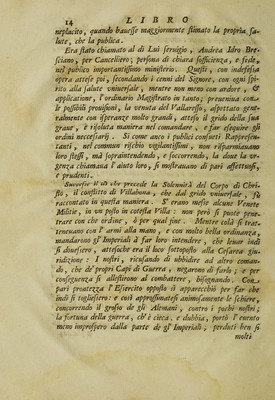 14 LIBRO
neplacito, quando hauesse maggiormente stimato la propria sa-
lute, che la publica.
Era stato chiamato al di Lui seruigio, Andrea Idro Bre-
sciano, per Cancelliero; persona di chiara sofficienza, e fede,
nel publico importantissimo ministerio. Questi, con indefessa
opera attese poi, secondando i cenni del Signore, con ogni spi-
rito alla salute vniuersale, mentre non meno con ardore, &
applicatione, l'ordinario Magistrato in tanto, premuniua con-
le possibili prouisioni, la venuta del Vallaresso, aspettato gene-
ralmente con isperanze molto grandi, atteso il grido della sua
graue, e risoluta maniera nel comandare, e far esequire gli
ordini necessarij. Si come anco i publici consorti Rappresen-
tanti, nel commun rischio vigilantissimi, non risparmiauano
loro stessi, mà sopraintendendo, e soccorrendo, la doue la vr-
genza chiamaua l'aiuto loro, si mostrauano di pari affettuosi,
e prudenti.
Successe il dì che precede la Solennità del Corpo di Chri-
sto, il conflitto di Villabona, che dal grido vniuersale, fù
raccontato in questa maniera. S'erano messe alcune Venete
Militie, in vn posto in cotesta Villa: non però si puote pene-
trare con che ordine, è per qual fine. Mentre colà si trat-
teneuano con l'armi alla mano, e con molto bella ordinanza,
mandarono gl'Imperiali à far loro intendere, che leuar indi
si douessero, attesoche era il loco sottoposto alla Cesarea giu-
ridizione: I nostri, ricusando di vbbidire ad altro coman-
do, che de' proprj Capi di Guerra, negarono di farlo; e per
conseguenza si allestirono al combattere, bisognando. Con
pari prontezza l'Esercito opposto si apparecchiò per far che
indi si togliessero: e così approssimatesi animosamente le schiere,
concorrendo il grosso de gli Alemani, contro i pochi nostri;
la fortuna della guerra, ch'è cieca, e dubbia, portò l'euento
meno improspero dalla parte de gl'Imperiali, perduti ben sì
molti